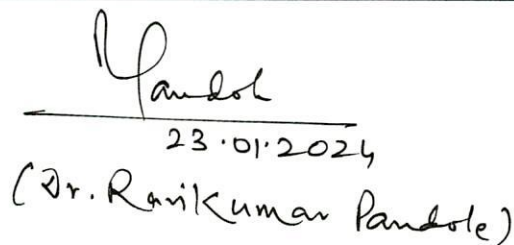 Pandole
23.01.2024
(Dr. Ravikumar Pandole)